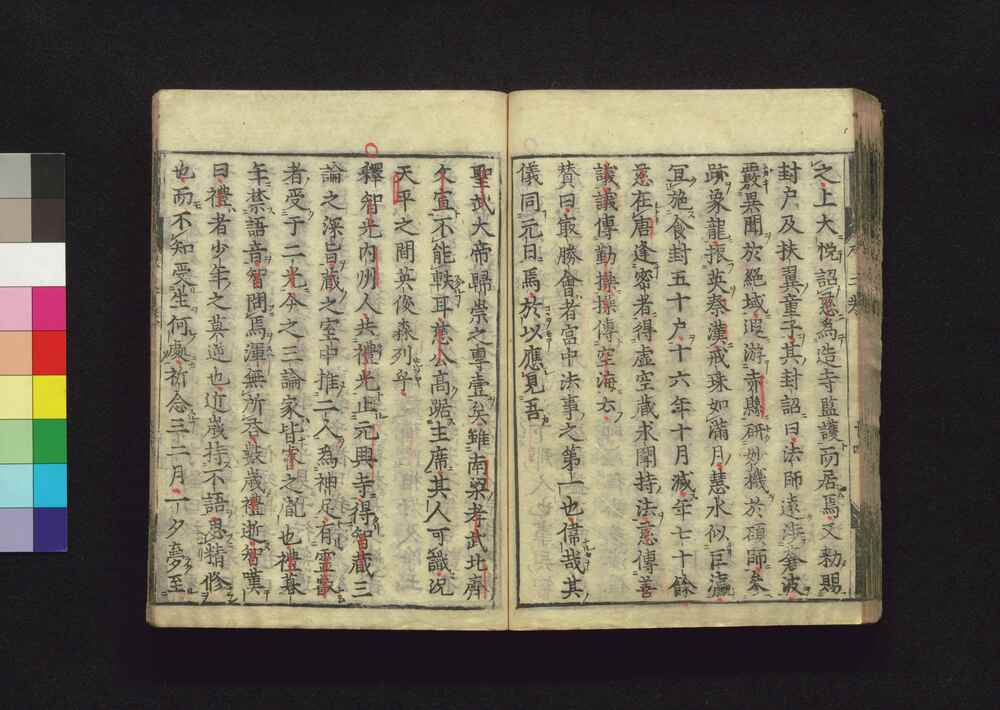 之上大悦詔慈為造寺監護而居焉又勅賜
封戸及扶翼童子其封詔曰法師遠渉蒼波
覈異聞於絶域遐游赤縣研妙機於碩師參
跡象龍振英秦漢戒珠如滿月慧水似巨瀛
宜施食封五十戸十六年十月滅年七十餘
慈在唐逢密者得虚空藏求聞持法慈傳善
議議傳勤操操傳空海云
賛曰最勝會者宮中法事之第一也偉哉其
儀同元日焉於以應見吾
聖武大帝歸崇之專壹矣雖南梁孝武北齊
文宣不能軼耳慈公髙踞主席其人可識況
天平之間英俊森列乎
釋智光内州人共禮光止元興寺得智藏三
論之深旨藏之室中推二人為神足有靈叡
者受于二光今之三論家皆叡之胤也禮暮
年禁語音智問焉渾無所荅數歳禮逝智嘆
曰禮者少年之莫逆也近歳持不語思精修
也而不知受生何處祈念三二月一夕夢至